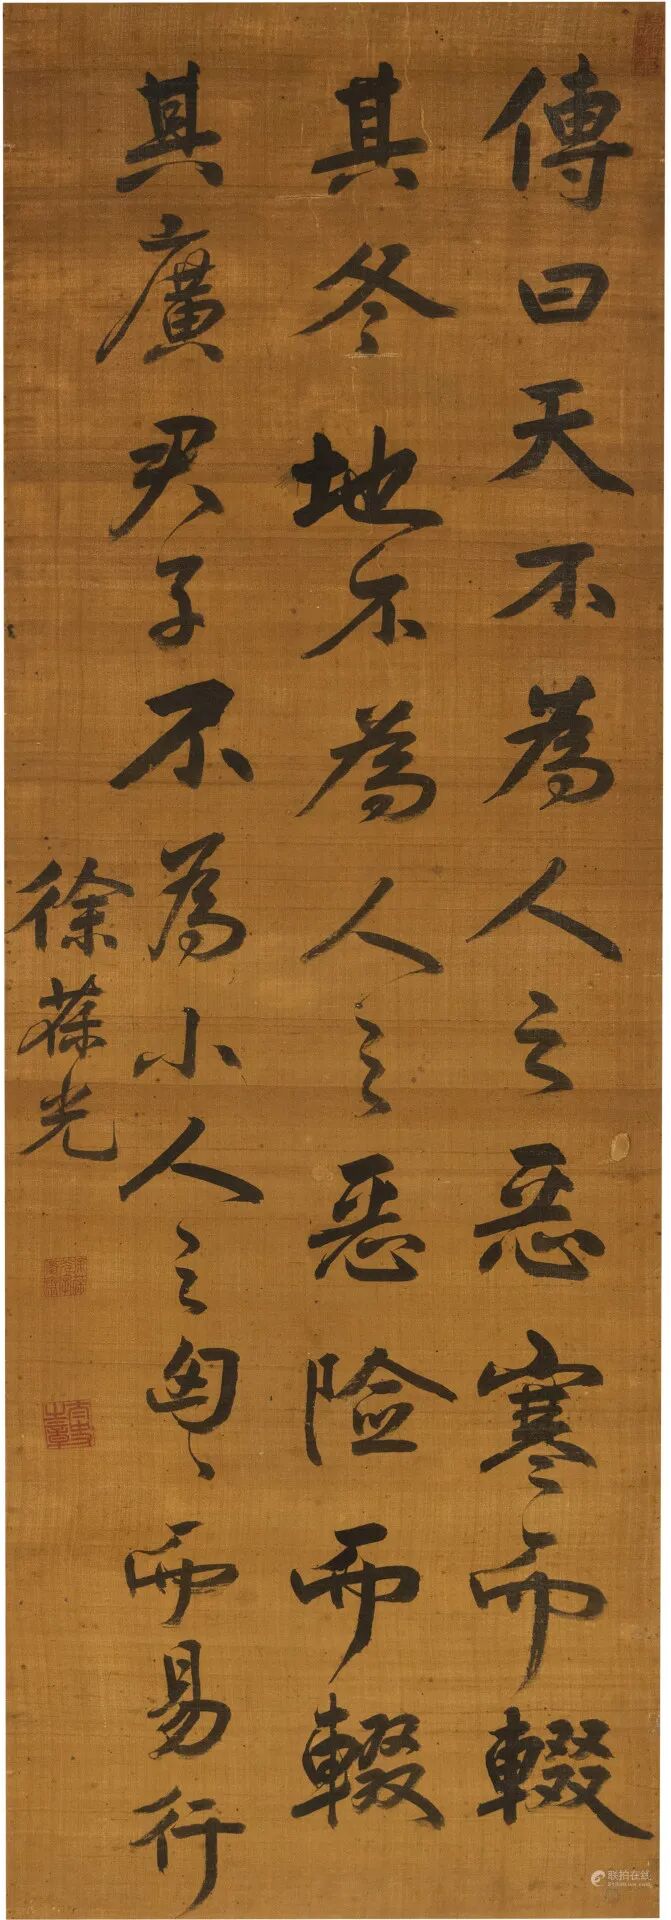 傳曰天不為人之惡寒而輟
其冬地不為人之惡險而輟
其廣君子不為小人之匈匈而易行
徐葆光
太史之章
联拍在线